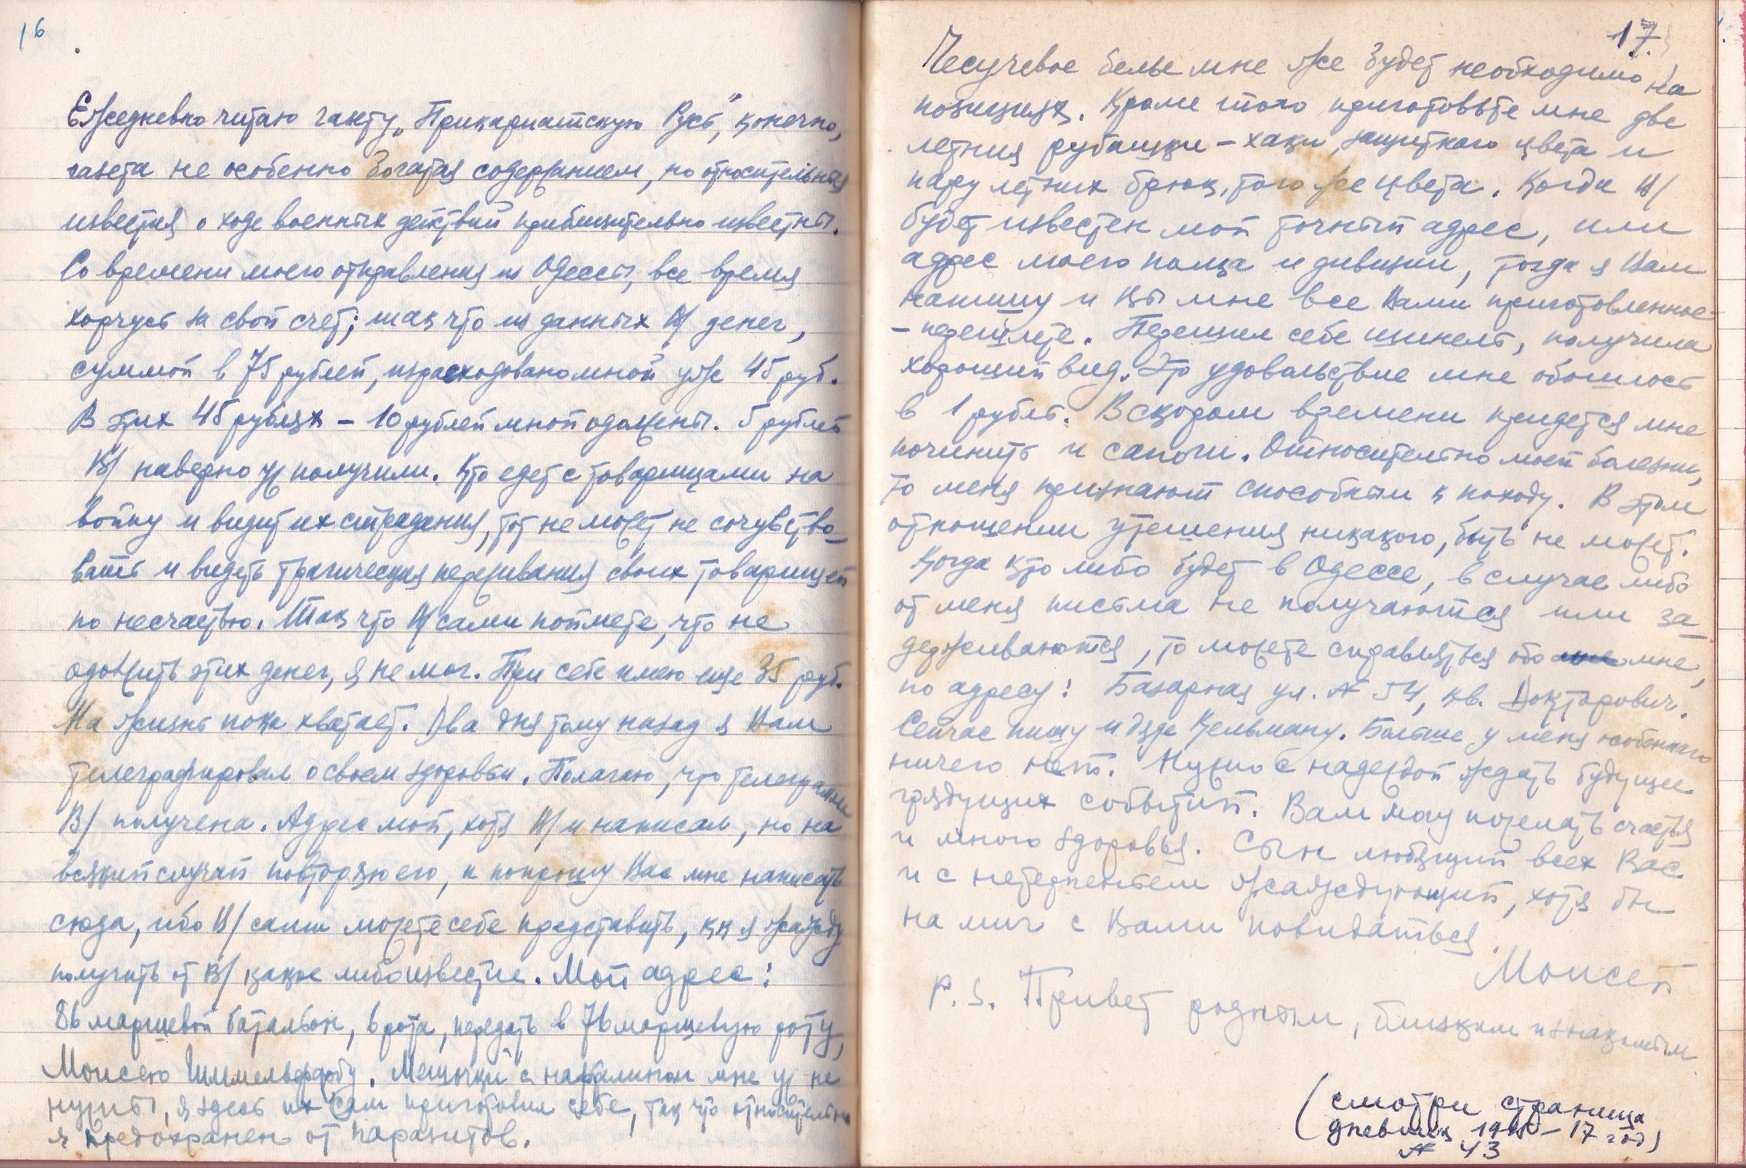 16
Ежедневно читаю газету „Прикарпатскую Русь“, конечно,
газета не особенно богатая содержанием, но относительныя
известия о ходе военных действий приблизительно известны.
Со времени моего отправления из Одессы, все время
харчусь за свой счет; так что из данных В/ денег,
суммой в 75 рублей, израсходовано мной уже 45 руб.
В этих 45 рублях – 10 рублей мной одолжены. 5 рублей
В/ наверно уж получили. Кто едет с товарищами на
войну и видит их страдания, тот не может не сочувство-
вать и видеть трагическия переживания своих товарищей
по несчастью. Так что В/ сами поймете, что не
одолжить этих денег, я не мог. При себе имею еще 35 руб.
На жизнь пока хватает. Два дня тому назад я Вам
телеграфировал о своем здоровьи. Полагаю, что телеграмма
В/ получена. Адрес мой, хотя В/ и написал, но на
всякий случай повторяю его, и попрошу Вас мне написать
сюда, ибо В/ сами можете себе представить, как я жажду
получить от В/ какое либо известие. Мой адрес:
86 маршевой батальон, 8 рота, передать в 76 маршевую роту,
Моисею Шимельфарбу. Мешочки с нафталином мне уж не
нужны, я здесь их сам приготовил себе, так что относительно
я предохранен от паразитов.
17.
Чесучевое белье мне же будет необходимо на
позициях. Кроме того приготовьте мне две
летния рубашки – хаки, защитного цвета и
пару летних брюк, того же цвета. Когда В/
будет известен мой точный адрес, или
адрес моего полка и дивизии, тогда я Вам
напишу и Вы мне все Вами приготовленное
– перешлете. Перешил себе шинель, получила
хороший вид. Это удовольствие мне обошлось
в 1 рубль. В скором времени придется мне
починить и сапоги. Относительно моей болезни,
то меня признают способным к походу. В этом
отношении утешения никакого, быть не может.
Когда кто либо будет в Одессе, в случае либо
от меня письма не получаются или за-
держиваются, то можете справиться обо мне,
по адресу: Базарная ул. № 54, кв. Докторович.
Сейчас пишу и дяде Кельману. Больше у меня особенного
ничего нет. Нужно с надеждой ждать будущее
грядущих событий. Вам могу пожелать счастья
и много здоровья. Сын любящий всех Вас
и с нетерпеньем жаждующий, хотя бы
на миг с Вами повидаться.
Моисей
P. S. Привет родным, близким и знакомым
(смотри страница
дневник 1915 – 17 год)
№ 43